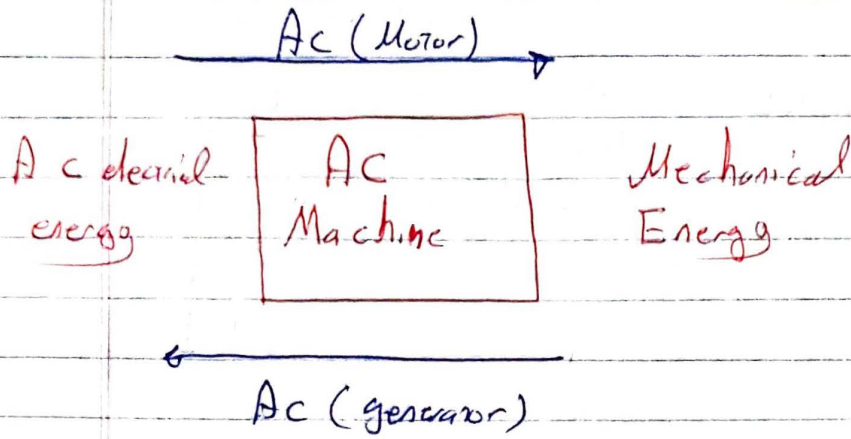 Ac (Motor)
Ac electrical
energy
AC
Machine
Mechanical
Energy
Ac (generator)